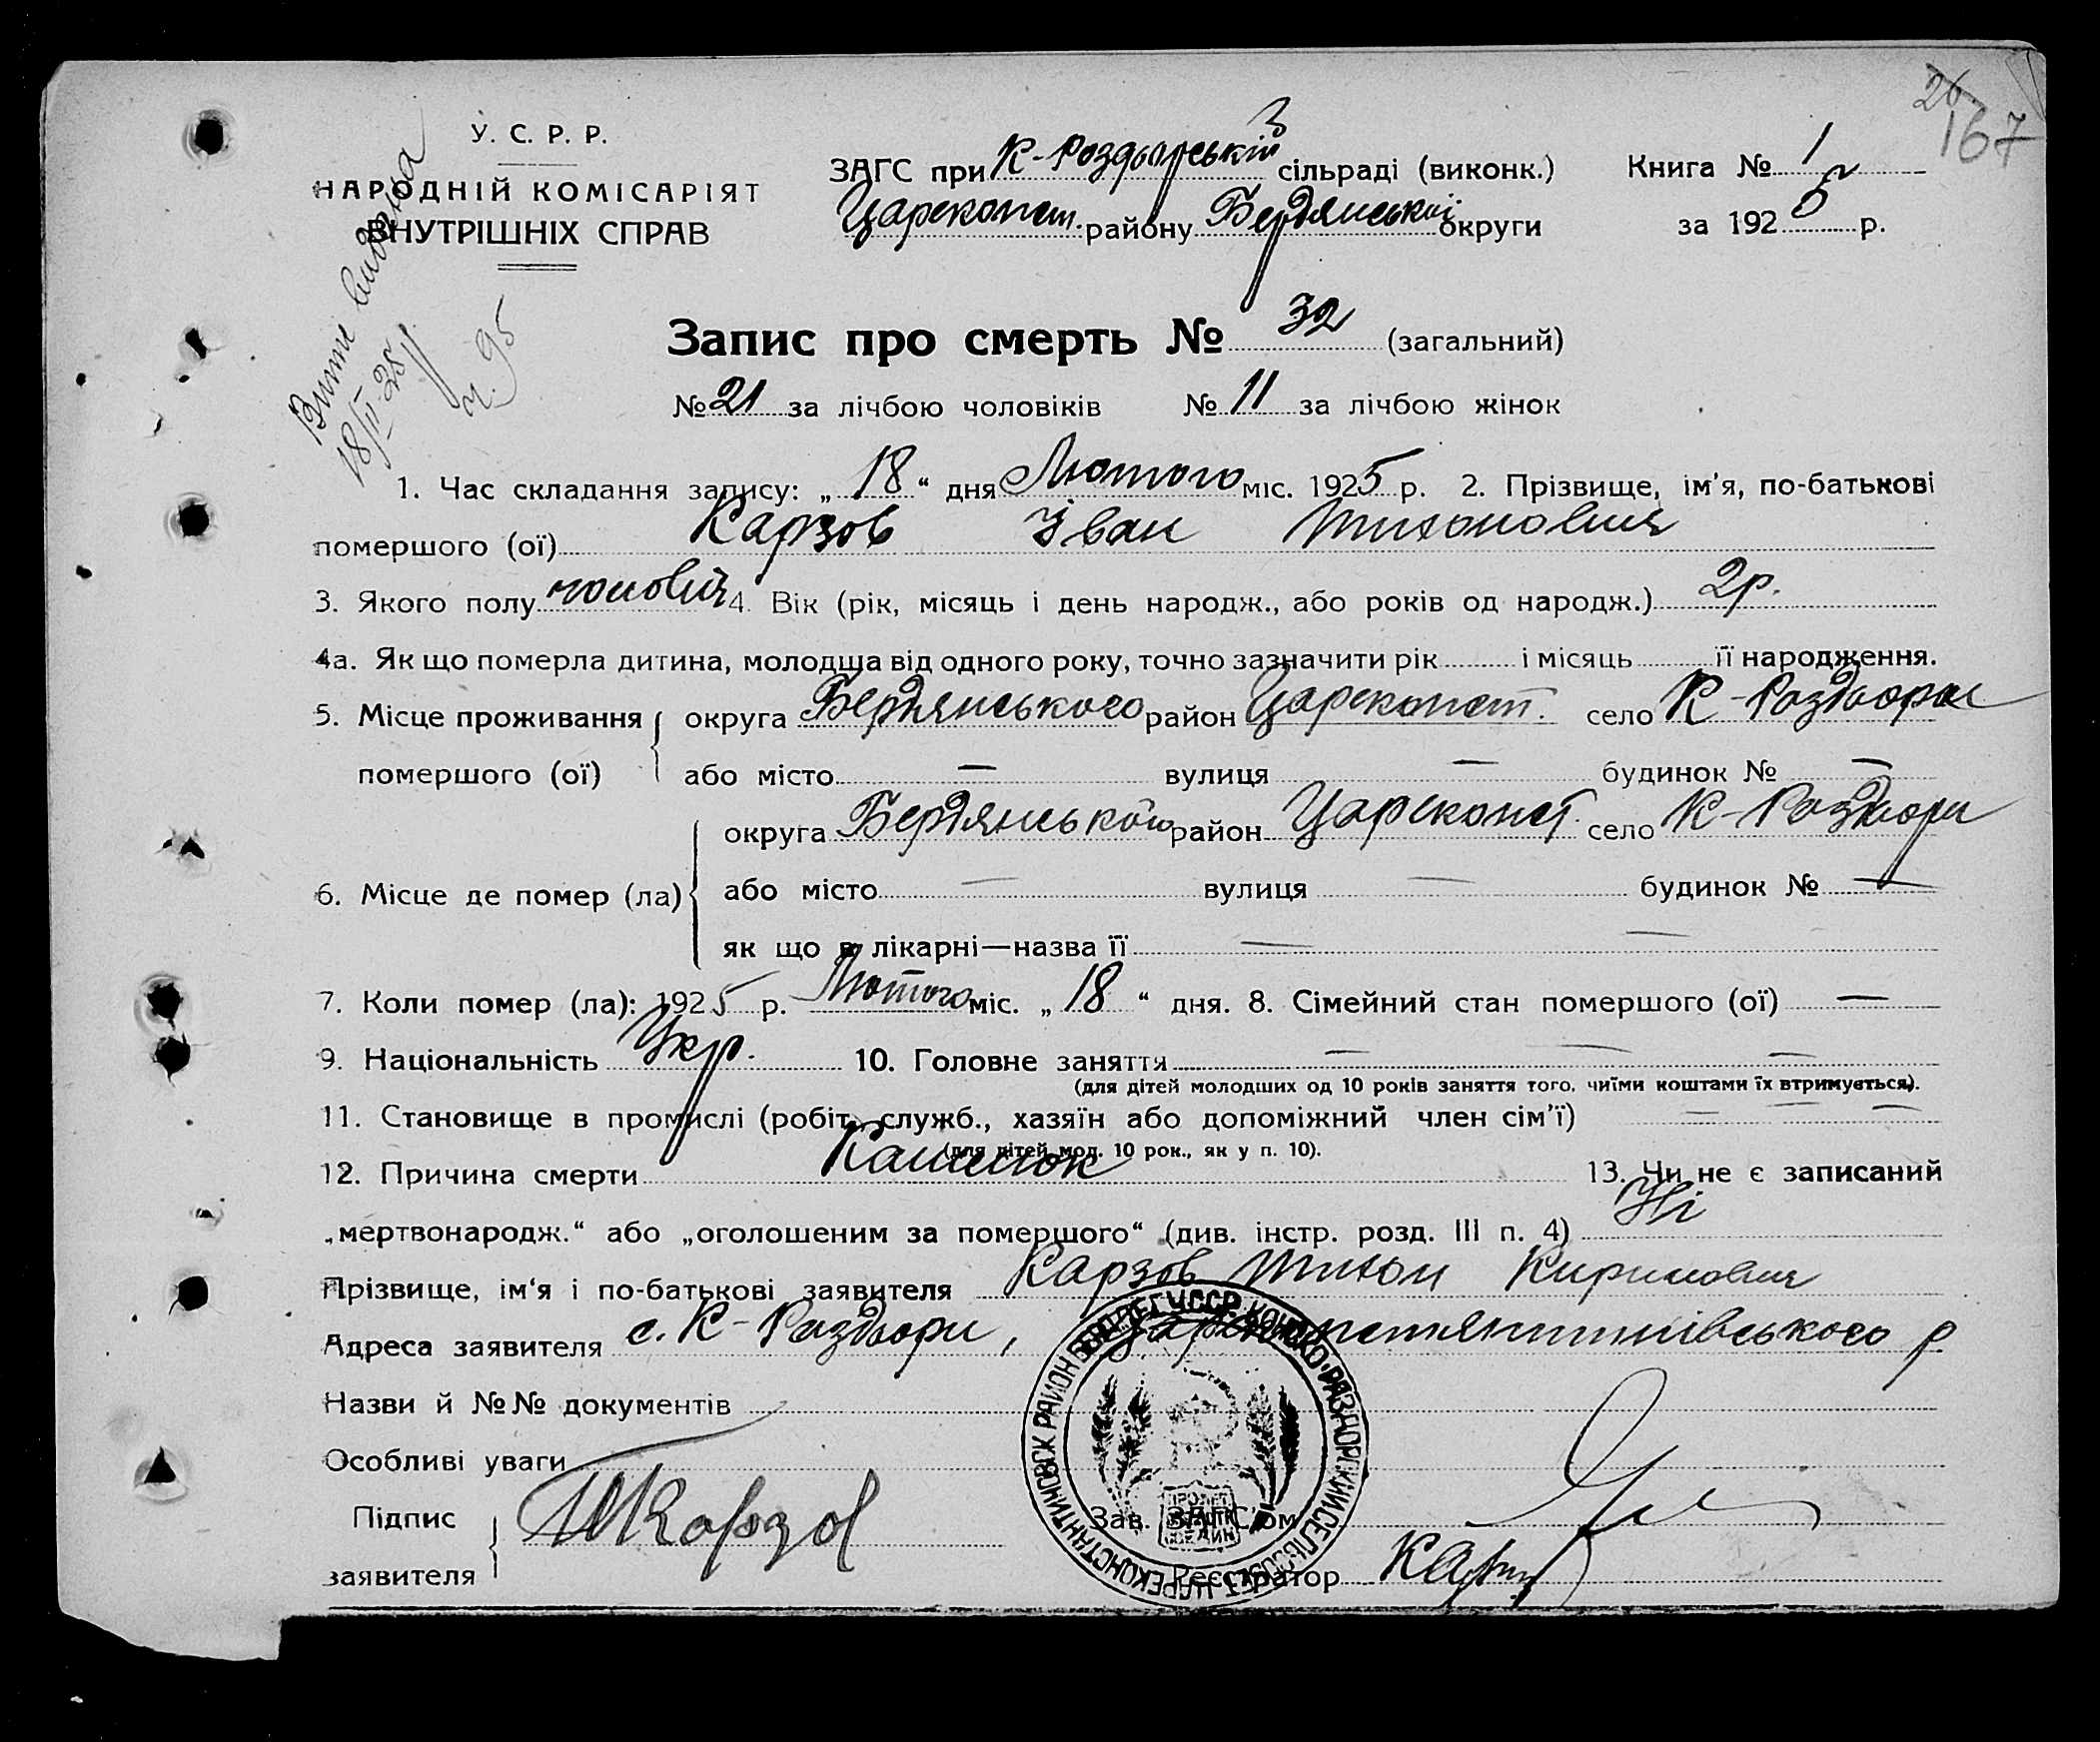 26
167
У. С. Р. Р.
НАРОДНІЙ КОМІСАРІЯТ
ВНУТРІШНІХ СПРАВ
ЗАГС при К-Роздорській сільраді (виконк.)
Цареконст. району Бердянської округи
Книга № 1
за 1925 р.
18/II 25
ч. 95
Запис про смерть № 32 (загальний)
№ 21 за лічбою чоловіків № 11 за лічбою жінок
1. Час складання запису: „ 18 “ дня Лютого міс. 1925 р. 2. Прізвище, ім'я, по-батькові
помершого (ої) Карзов Іван Тихонович
3. Якого полу чоловіч 4. Вік (рік, місяць і день народж., або років од народж.) 2р.
4а. Як що померла дитина, молодща від одного року, точно зазначити рік і місяць її народження.
5. Місце проживання округа Бердянського район Царсконст. село К-Роздори
помершого (ої) або місто — вулиця — будинок № —
округа Бердянського район Царсконст. село К-Роздори
6. Місце де помер (ла) або місто — вулиця — будинок № —
як що в лікарні—назва її — —
7. Коли помер (ла): 1925 р. Лютого міс. „ 18 “ дня. 8. Сімейний стан помершого (ої) —
9. Національність Укр. 10. Головне заняття — — —
(для дітей молодших од 10 років заняття того, чиїми коштами їх втримується).
11. Становище в промислі (робіт., служб., хазяїн або допоміжний член сім'ї) — — —
(для дітей мол. 10 рок., як у п. 10).
12. Причина смерти Кашлюк 13. Чи не є записаний
„мертвонародж.“ або „оголошеним за помершого“ (див. інстр. розд. III п. 4) Ні
Прізвище, ім'я і по-батькові заявителя Карзов Тихон Кирилович
Адреса заявителя с. К-Роздори, Цареконстянтинівського р
Назви й №№ документів
Особливі уваги
Підпис
заявителя ТКарзов
Зав. ЗАГС'ом
Реєстратор